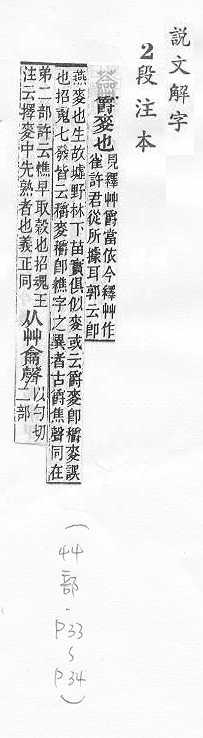 說文解字
2段注本
爵麥也見釋艸爵當依今釋艸作
雀許君從所據耳郭云卽
燕麥也生故墟野林下苗實俱似麥或云爵麥卽穱麥誤
也招䰟七發皆云穱麥穱卽樵字之異者古爵焦聲同在
弟二部許云樵早取穀也招䰟王
注云擇麥中先熟者也義正同
从艸龠聲以勺切
二部
(艸部.P33~P34)